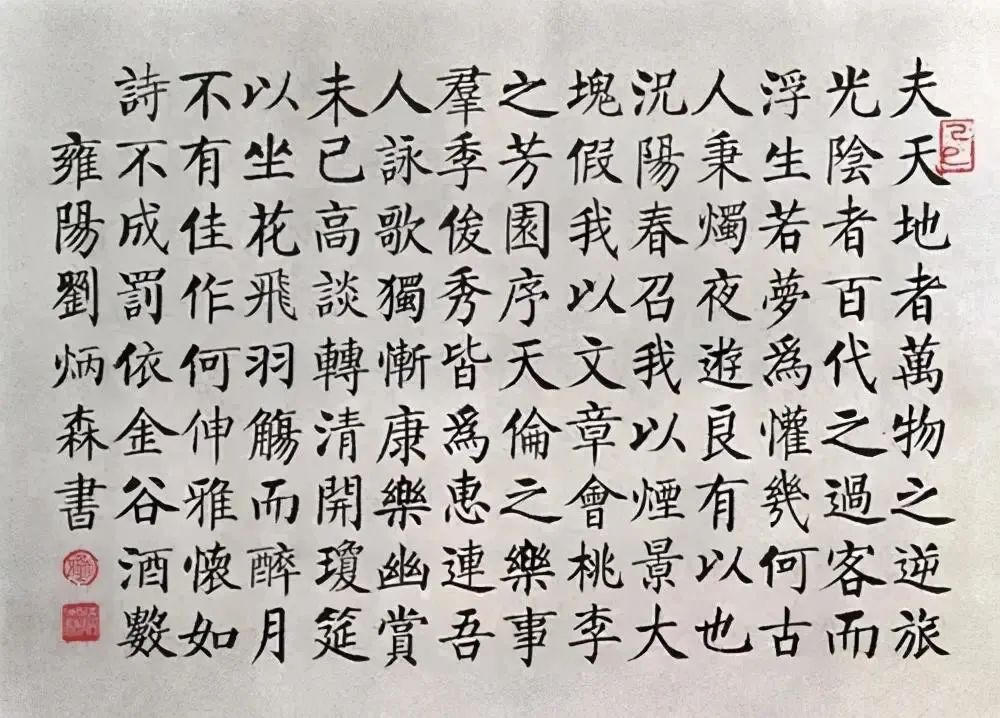 夫天地者萬物之逆旅
光陰者百代之過客而
浮生若夢爲懽幾何古
人秉燭夜遊良有以也
況陽春召我以煙景大
塊假我以文章會桃李
之芳園序天倫之樂事
羣季俊秀皆爲惠連吾
人詠歌獨慚康樂幽賞
未已高談轉清開瓊筵
以坐花飛羽觴而醉月
不有佳作何伸雅懷如
詩不成罰依金谷酒數
雍陽劉炳森書